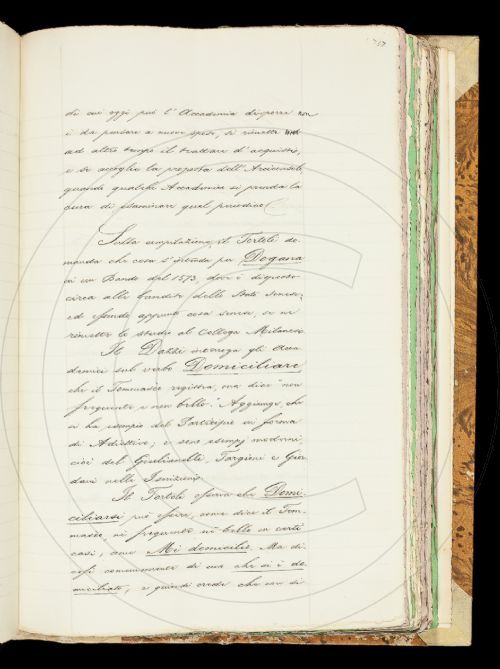 di cui oggi può l'Accademia disporre non
è da pensare a nuove spese, si rimette
ad altro tempo il trattare d'acquisto,
e si accoglie la proposta dell'Arciconsolo
quando qualche Accademico si prenda la
cura di esaminare quel periodico.
Sulla compilazione il Tortoli do-
manda che cosa s'intenda per Dogana
in un Bando del 1573, dove è discorso
circa alli banditi dello Stato Senese;
ed essendo appunto cosa senese, se ne
rimette lo studio al Collega Milanesi.
Il Dazzi interroga gli Acca-
demici sul verbo Domiciliare
che il Tommaseo registra, ma dice "non
frequente e non bello." Aggiunge, che
ci ha esempio del Participio in forma
di Adiettivo; e sono esempj moderni
cioè del Giulianelli, Targioni e Gior-
dani nelle Iscrizioni.
Il Tortoli osserva che Domi-
ciliarsi può essere, come dice il Tom-
maseo, nè frequente nè bello in certi
casi, come Mi domicilio. Ma di-
cesi comunemente di uno che si è do-
miciliato, e quindi crede che un di